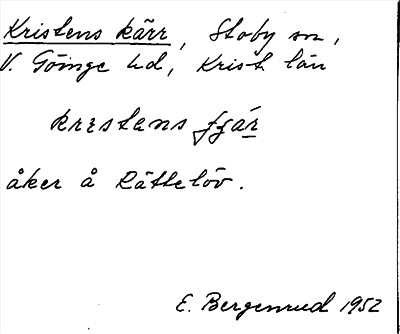 Kristens kärr, Stoby sn,
V. Göinge hd, Krist. län
krestens
åker å Rättelöv.
E. Bergenrud 1952